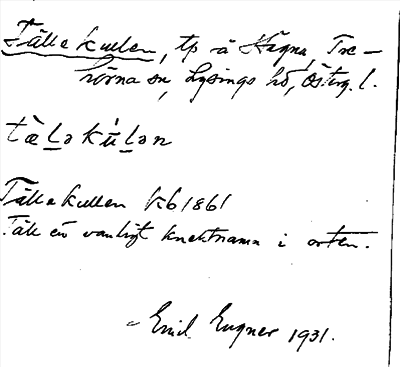 Tällekullen, tp å Hägna, Tre-
hörna sn, Lysings hd, Österg. l.
tæləkùlən
Tällekullen kb 1861
Täll en vanligt knektnamn i orten.
Emil Eugner 1931.